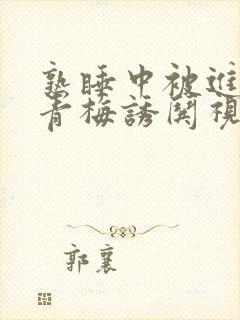 熟睡中被進
青梅誘関視
郭襄